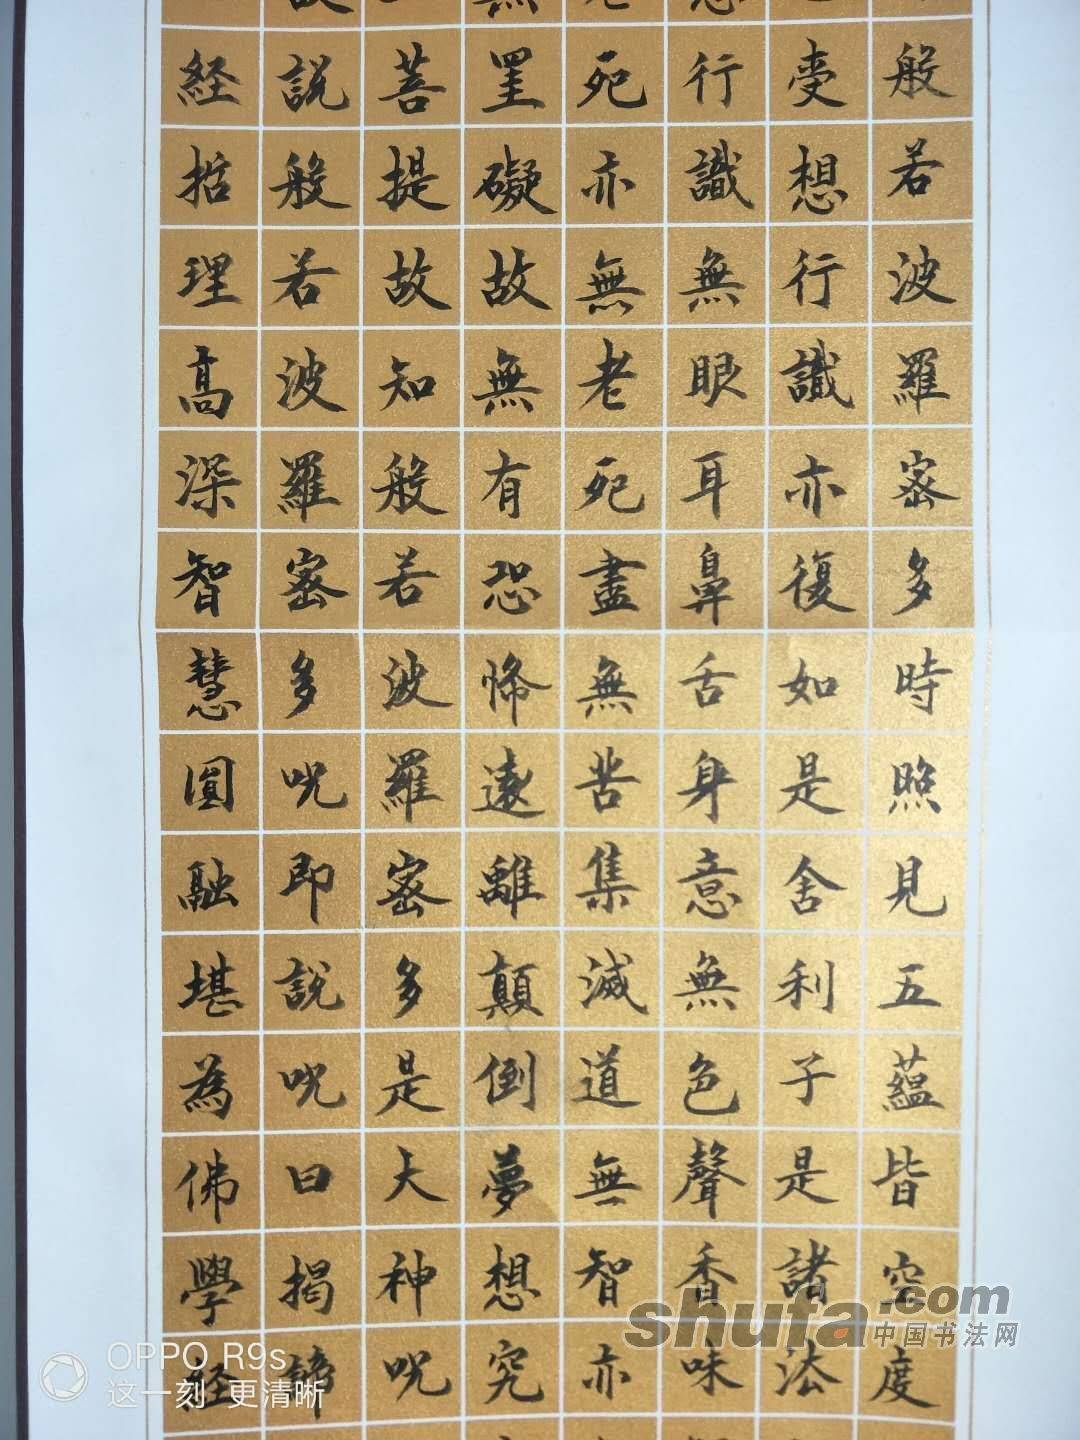 般若波羅密多時照見五蘊皆空度
受想行識亦復如是舍利子是諸法
行識無眼耳鼻舌身意無色聲香味
死亦無老死盡無苦集滅道無智亦
罣礙故無有恐怖遠離顛倒夢想究
菩提故知般若波羅密多是大神呪
說般若波羅密多呪即說呪曰揭諦
経哲理高深智慧圓融堪為佛學経
shufa.com
中国书法网
OPPO R9s
这一刻 更清晰